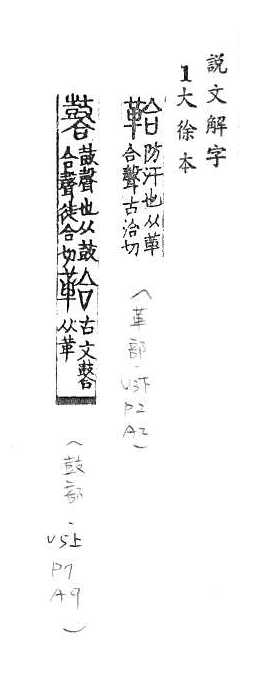 説文解字
1大徐本
鞈防汗也从革
合聲古洽切
(革部·
V3下
P2
A2)
鼛鼓聲也从鼓
合聲徒合切鞈古文鼛
从革
(鼓部·
V5上
P7
A9)